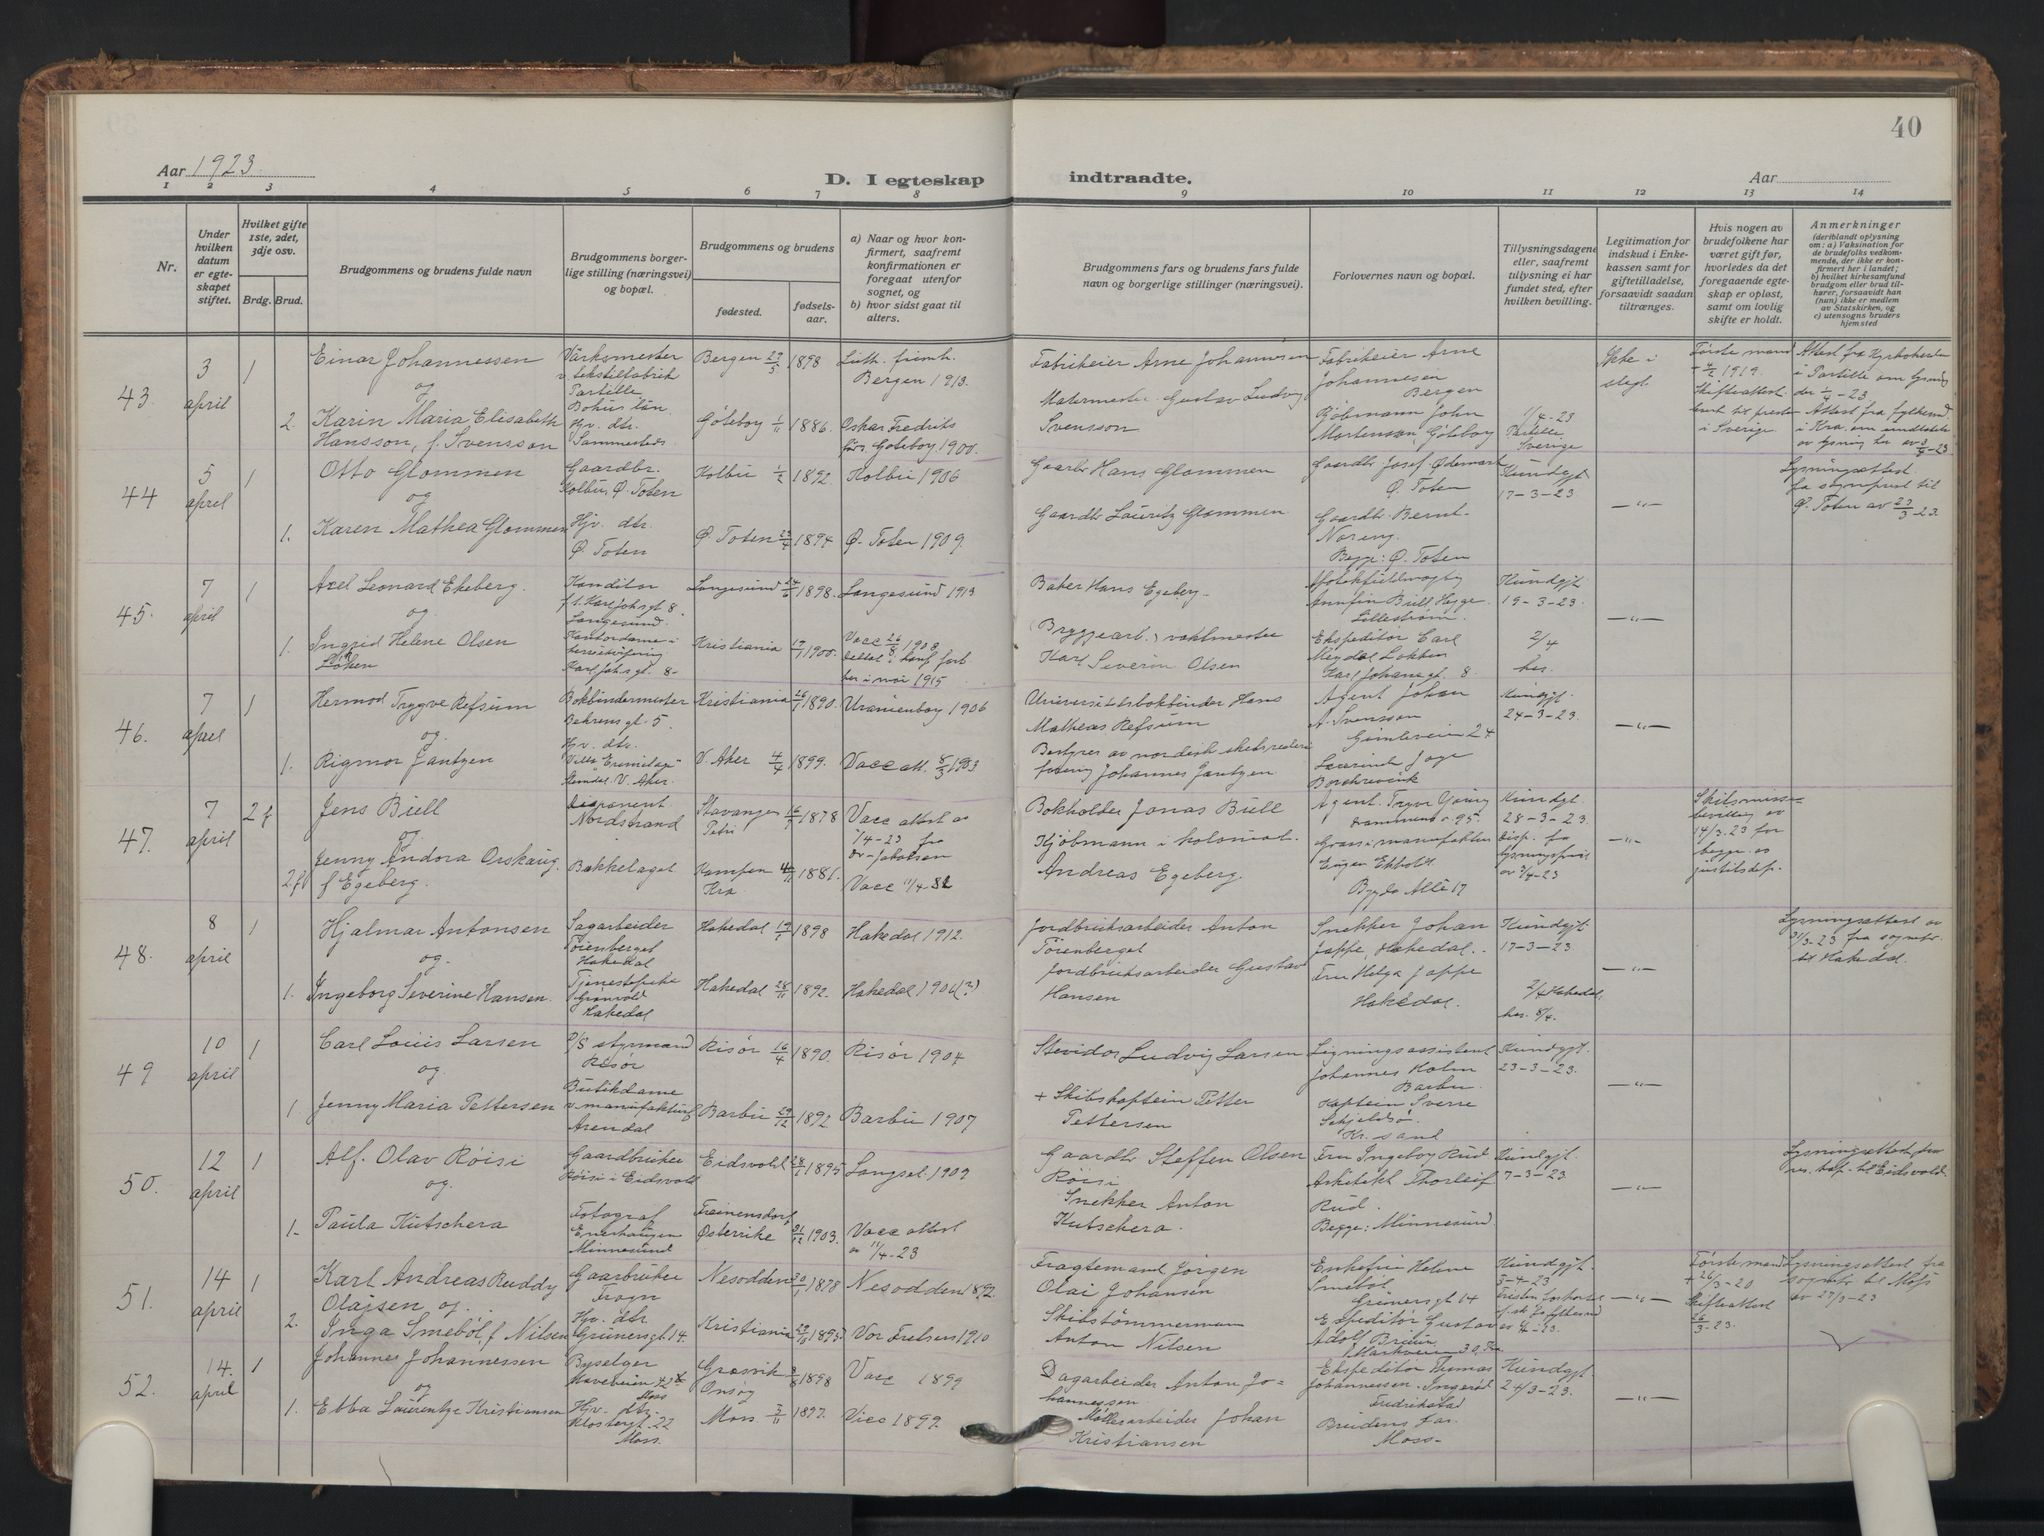 40
Aar 1923.
D. I egteskap indtraadte.
Aar
1 2 3 4 5 6 7 8 9 10 11 12 13 14
Nr.
Under hvilken datum er egteskapet stiftet.
Hvilket gifte 1ste, 2det, 3dje osv.
Brdg. Brud.
Brudgommens og brudens fulde navn
Brudgommens borgerlige stilling (næringsvei) og bopæl.
Brudgommens og brudens
fødested.
fødselsaar.
a) Naar og hvor konfirmert, saafremt konfirmationen er foregaat utenfor sognet, og
b) hvor sidst gaat til alters.
Brudgommens fars og brudens fars fulde navn og borgerlige stillinger (næringsvei).
Forlovernes navn og bopæl.
Tillysningsdagene eller, saafremt tillysning ei har fundet sted, efter hvilken bevilling.
Legitimation for indskud i Enkekassen samt for giftetilladelse, forsaavidt saadan tiltrænges.
Hvis nogen av brudefolkene har været gift før, hvorledes da det foregaaende egteskap er opløst, samt om lovlig skifte er holdt.
Anmerkninger
(deriblandt oplysning om: a) Vaksination for de brudefolks vedkommende, der ikke er konfirmert her i landet; b) hvilket kirkesamfund brudgom eller brud tilhører, forsaavidt han (hun) ikke er medlem av Statskirken, og c) utensogns bruders hjemsted
43. 3 april 1
Einar Johannessen
og
2. Karin Maria Elisabeth
Hansson, f. Svensson
Værksmester
v. tekstilfabrik
Partille
Bohus län.
Hj. dtr.
Sammesteds
Bergen 29/5 1898
Göteborg 1/11 1886.
Luth. frimh.
Bergen 1913.
Oskar Fredriks
förs. Göteborg 1900.
Fabrikeier Arne Johannesen
Gustav Ludvig
Svensson
Fabrikeier Arne
Johannesen
Bergen
Kjöbmann John
Mortensen, Göteborg
1/4-23
Partille
Sverige
Ikke i
slegt
Første mand
1919.
Skifteattest
i Sverige
Attest fra
i Partille om lysning
44 5 april 1
Otto Glommen
og
1. Karen Mathea Glommen
Gaardbr.
Kolbu, Ø. Toten
Hjv. dtr.
Ø. Toten
Kolbu 1/2 1892
Ø. Toten 23/4 1894
Kolbu 1906
Ø. Toten 1909.
Gaardbr Hans Glommen
Gaardbr Lauritz Glommen.
Gaardbr. Josef Ødemark
Ø. Toten
Gaardbr. Bernt
Noreng.
Begge: Ø. Toten
Kundgjt
17-3-23
—"—
Lysningsattest
fra sognpræst til
Ø. Toten av 23/3-23.
45. 7 april 1
Axel Leonard Ekeberg.
og
1. Ingrid Helene Olsen
Løken
Konditor
f. t. Karl Johsgt 8.
Langesund.
Kontordame i
Karl Johsgt. 8-
Langesund 24/6 1898.
Kristiania 17/1 1900.
Langesund 1913
Vacc 26/8 1908
deltat i konf. forb.
her i mai 1915
Baker Hans Egeberg-
(Bryggearb.) vaktmester
Karl Severin Olsen
Annfin Bull Hegge.
Lillestrøm.
Ekspeditør Carl
Meydal Løkken
Karl Johansgt. 8.
Kundgjt.
19-3-23.
2/4
her.
—"—
46. 7 april 1
Hermod Tryggve Refsum
og.
1. Rigmor Jantzen
Bokbindermester
Behrensgt. 5
Hjv. dtr.
Villa "Eremitage"
Slemdal. V. Aker.
Kristiania 26/1 1890.
V. Aker 4/4 1899.
Uranienborg 1906
Vacc att. 8/3 1903
Universitetsbokbinder Hans
Mathias Refsum
Bestyrer av nordisk skibsrederi
forening Johannes Jantzen
Agent Johan
A. Svenssen
Gimleveien 24
Kundgjt.
24-3-23.
—"—
47. 7 april 2 f
Jens Bull
og.
2 f Jenny Andora Orskaug.
f Egeberg.
Disponent
Nordstrand
Bækkelaget
Stavanger
Petri 16/7 1878
Kampen
Kra 1881.
Vacc attest av
7/4-23 fra
dr. Jakobsen
Vacc 11/4-82
Bokholder Jonas Bull
Kjøbmann i kolonial.
Andreas Egeberg.
Agent Trygve
Drammensv. 95.
Gross i manufaktur
Eugen Ekholdt
Bygdø Allé 17
Kundgt.
28-3-23.
Disp. fra
lysningsfrist
av 7/4-23
—"—
Skilsmisse-
bevilling av
14/3.23 for
begge av
justitsdep.
48. 8 april 1
Hjalmar Antonsen
og.
1. Ingeborg Severine Hansen.
Sagarbeider
Tøienberget
Hakedal
Tjenestepike
Grønvold
Hakedal
Hakedal 19/1 1898
Hakedal 28/11 1892.
Hakedal 1912.
Hakedal 1906(?)
Jordbruksarbeider Anton
Tøienberget
Jordbruksarbeider Gustav
Hansen
Snekker Johan
Jappe, Hakedal.
Fru Helga Jappe
Hakedal.
Kundgjt
17-3-23.
2/4 Hakedal.
her. 8/4.
—"—
Lysningsattest av
31/3-23 fra sognpr.
til Hakedal.
49 10 april 1
Carl Louis Larsen
og.
1. Jenny Maria Pettersen
D/S styrmand
Risør
Butikdame
v. manufaktur
Arendal
Risør 16/4 1890.
Barbu 29/12 1892
Risør 1904
Barbu 1907
Stevidor Ludvig Larsen
+ Skibskaptein Petter
Pettersen
Ligningsassistent
Johannes Holm
Barbu.
Kaptein Sverre
Skjeldsø.
Kr. sand
Kundgjt.
23-3-23.
—"—
50. 12 april 1
Alf. Olav Røisi
og
1- Paula Kutschera
Gaardbruker
Røisi i Eidsvold
Fotograf
Enerhaugen
Minnesund
Eidsvold 28/1 1895
Østerrike 21/12 1903.
Langset 1909
Vacc attest
av 11/4-23
Gaardbr Steffen Olsen
Røisi
Snekker Anton
Kutschera.
Fru Ingeborg Rud
Arkitekt Thorleif
Rud.
Begge: Minnesund.
Kundgjt.
7-3-23.
—"—
Lysningsattest fra
res. kap. til Eidsvold.
51. 14 april 1
Karl Andreas Ruddy
Olajsen og.
2. Inga Smebøl, f. Nilsen
Gaarbruker
Frogn
Hjv. dtr
Grünersgt 14.
Nesodden 30/1 1878
Kristiania 1895
Nesodden 1892.
Vor Frelsers 1910
Fragtemand Jørgen
Olai Johansen
Skibstømmermann
Anton Nilsen
Enkefru Helene
Smebøl
Grünersgt 14
Expeditør Gustav
Adolf Bruun
Markveien 30, Kra
Kundgjt.
3-4-23
—"—
Første mand
+ 26/3-20
Skifteattest
26/3-23.
Lysningsattest fra
sognpr. til Moss
av 27/3-23
52. 14. april 1
Johannes Johannessen
og
1. Ebba Laurentze Kristiansen
Byselger
Moss
Hjv. dtr.
Klostergt. 22
Moss.
Græsvik
Onsøy 3/8 1898
Moss 3/11 1897.
Vacc 1899
Vacc 1899.
Dagarbeider Anton Jo-
hannessen.
Møllerarbeider Johan
Kristiansen
Ekspeditør Thomas
Johannessen. Ingerød
Fredrikstad
Brudens far.
Moss-
Kundgjt
24/3-23.
—"—